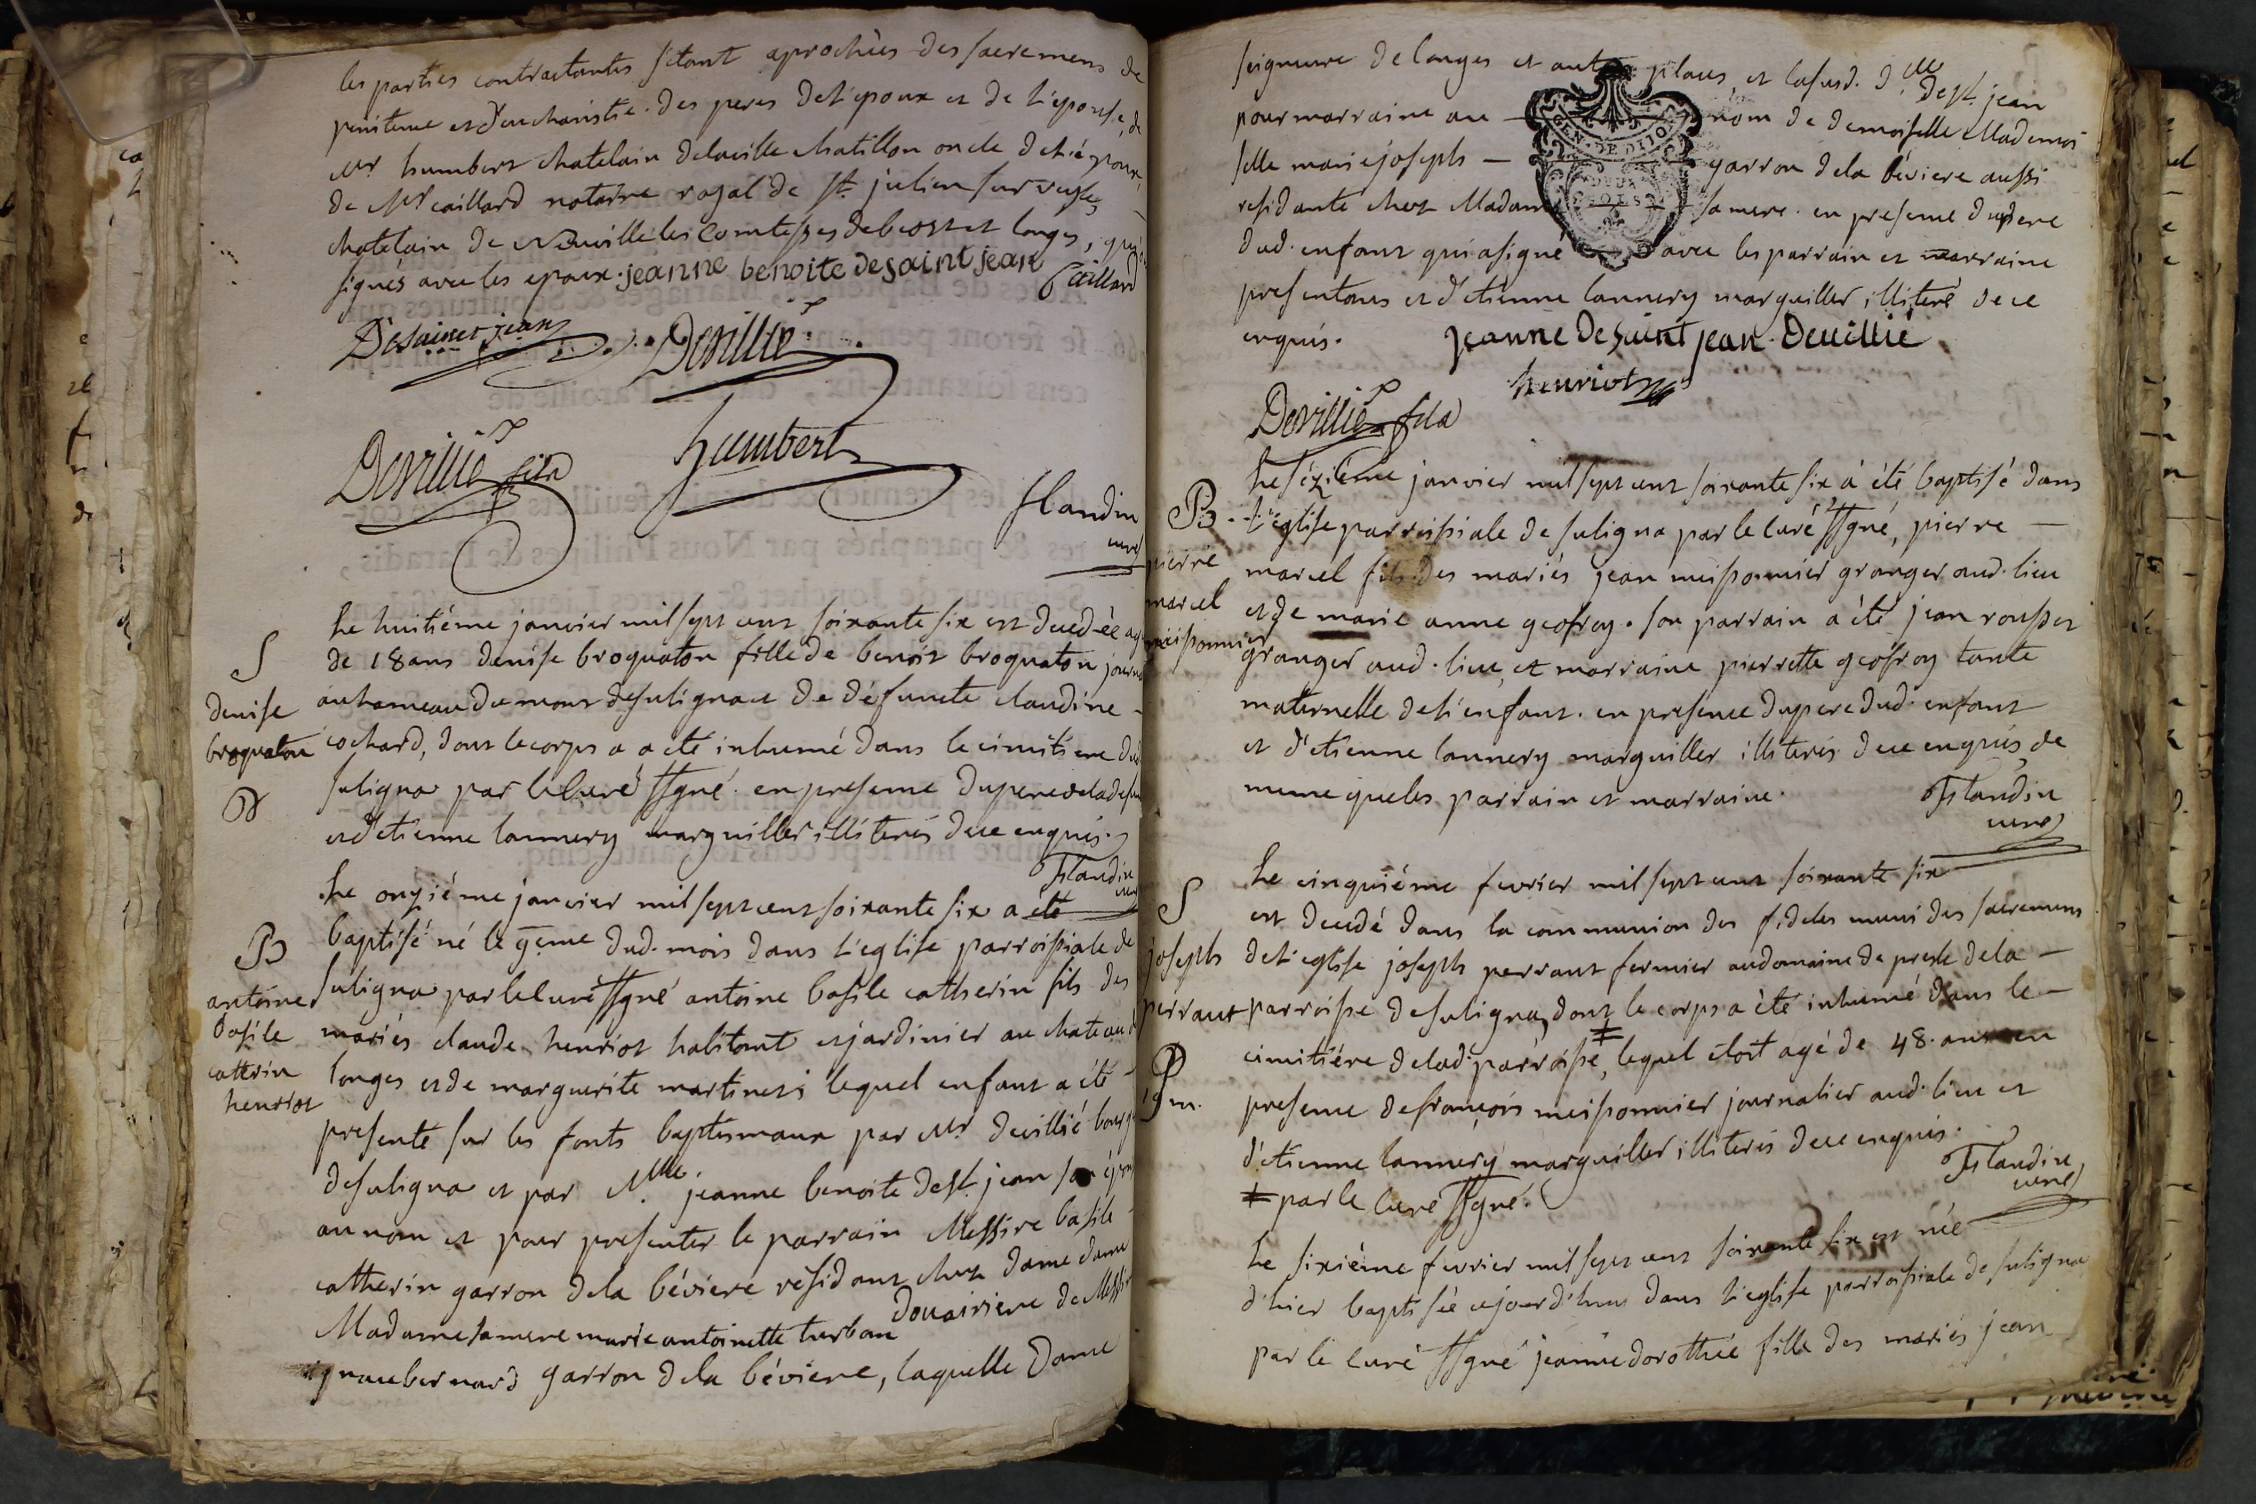 les parties contractantes s'étant aprochées des sacremens de
penitence et d'eucharistie. des peres de l'époux et de l'épouse, de
Mr humbert chatelain de laville chatillon oncle de l'époux,
de Mr caillard notaire royal de St. julien sur
chatelain de Neuville les Comtesses de beost et longes, qui
signés avec les epoux. jeanne benoite desaint jean Caillard
Desainct jean Devillié
Devillié fils humbert
flandin
curé
Le huitiéme janvier mil sept cent soixante six est decedée agée
de 18 ans denise broquaton fille de benoit broquaton journ
au hameau du mont de suligna et de défuncte claudine
cochard, dont le corps a été inhumé dans le cimitiere dud
suligna par le curé ssgné. en presence du pere de la defun
et d'etienne lannery marguiller illiterés de ce enquis.
S
denise
broquaton
flandin
curé
Le onziéme janvier mil sept cent soixante six a été
baptisé né le 9eme dud. mois dans l'eglise parroissiale de
suligna par le curé ssgné antoine basile catherin fils des
mariés claude henriot habitant et jardinier au chateau de
longes et de marguerite martinet; lequel enfant a été
presenté sur les fonts baptismaux par Mr devillié bourg
de suligna et par Mlle. jeanne benoite de St. jean son epou
au nom et pour presenter le parrain Messire basile
catherin garron de la béviere résidant chez dame dame
Madame sa mere marie antoinette turban douairiere de Messi
ignace bernard garron de la béviere, laquelle dame
B
antoine
basile
catherin
henriot
seigneure de longes et autres places, et la susd. dlle de St. jean
pour marraine au nom de demoiselle Mademoi
selle marie joseph garron de la béviere aussi
residante chez Madame sa mere. en presence du pere
dud. enfant qui a signé avec les parrain et marraine
presentans et d'etienne lannery marguiller illiteré de ce
enquis. jeanne desaint jean. Devillié
henriot
Devillié fils
GEN. DE DIJON
DEUX
SOLS
Le sézième janvier mil sept cent soixante six à été baptisé dans
l'eglise parroissiale de suligna par le curé ssgné, pierre
marcel fils des mariés jean meissonnier granger aud. lieu
et de marie anne geofroy. son parrain a été jean rousset
granger aud. lieu, et marraine pierrette geofroy tante
maternelle de l'enfant. en presence du pere dud. enfant
et d'etienne lannery marguiller illiterés de ce enquis, de
meme que les parrain et marraine.
B
pierre
marcel
meissonnier
flandin
curé
Le cinquiéme fevrier mil sept cent soixante six
est decedé dans la communion des fideles muni des sacremens
de l'eglise joseph perraut fermier au domaine de presle de la
parroisse de suligna, dont le corps a été inhumé dans le
cimitiére de lad. parroisse, lequel étoit agé de 48. ans en
presence de françois meissonnier journalier aud. lieu et
d'etienne lannery marguiller illiterés de ce enquis.
‡ par le curé ssgné.
S
joseph
perraut
flandin
curé
Le sixiéme fevrier mil sept cent soixante six est née
d'hier baptisée cejourd'huy dans l'eglise parroissiale de suligna
par le curé ssgné jeanne dorothée fille des mariés jean